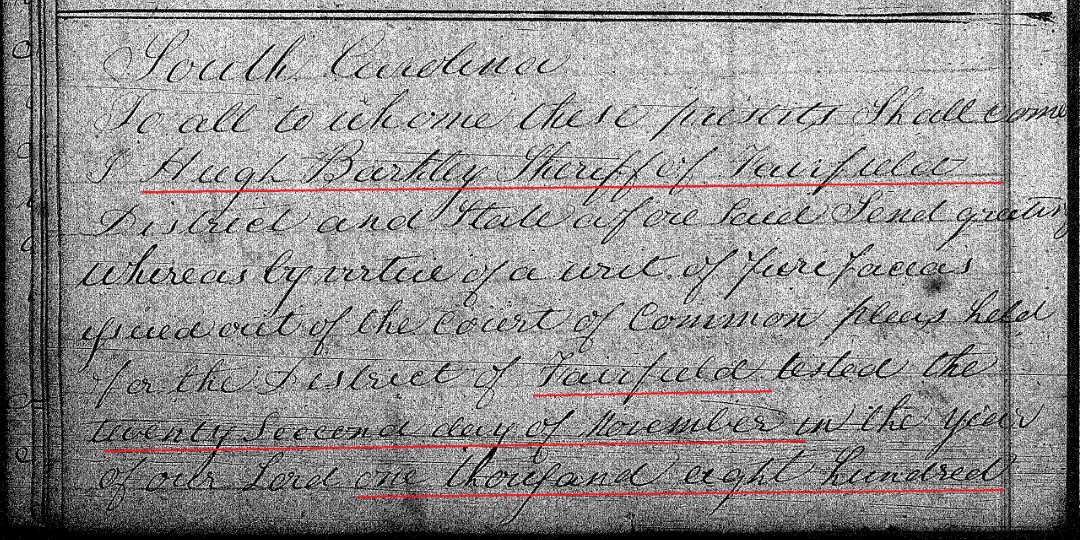 South Carolina
To all to whome these presents Shall come
I Hugh Barkley Sheriff of Fairfield
District and State afore Said Send greeting
Whereas by virtue of a writ of fieri facias
issued out of the Court of Common pleas held
for the District of Fairfield tested the
twenty Second day of November in the year
of our Lord one thousand eight hundred